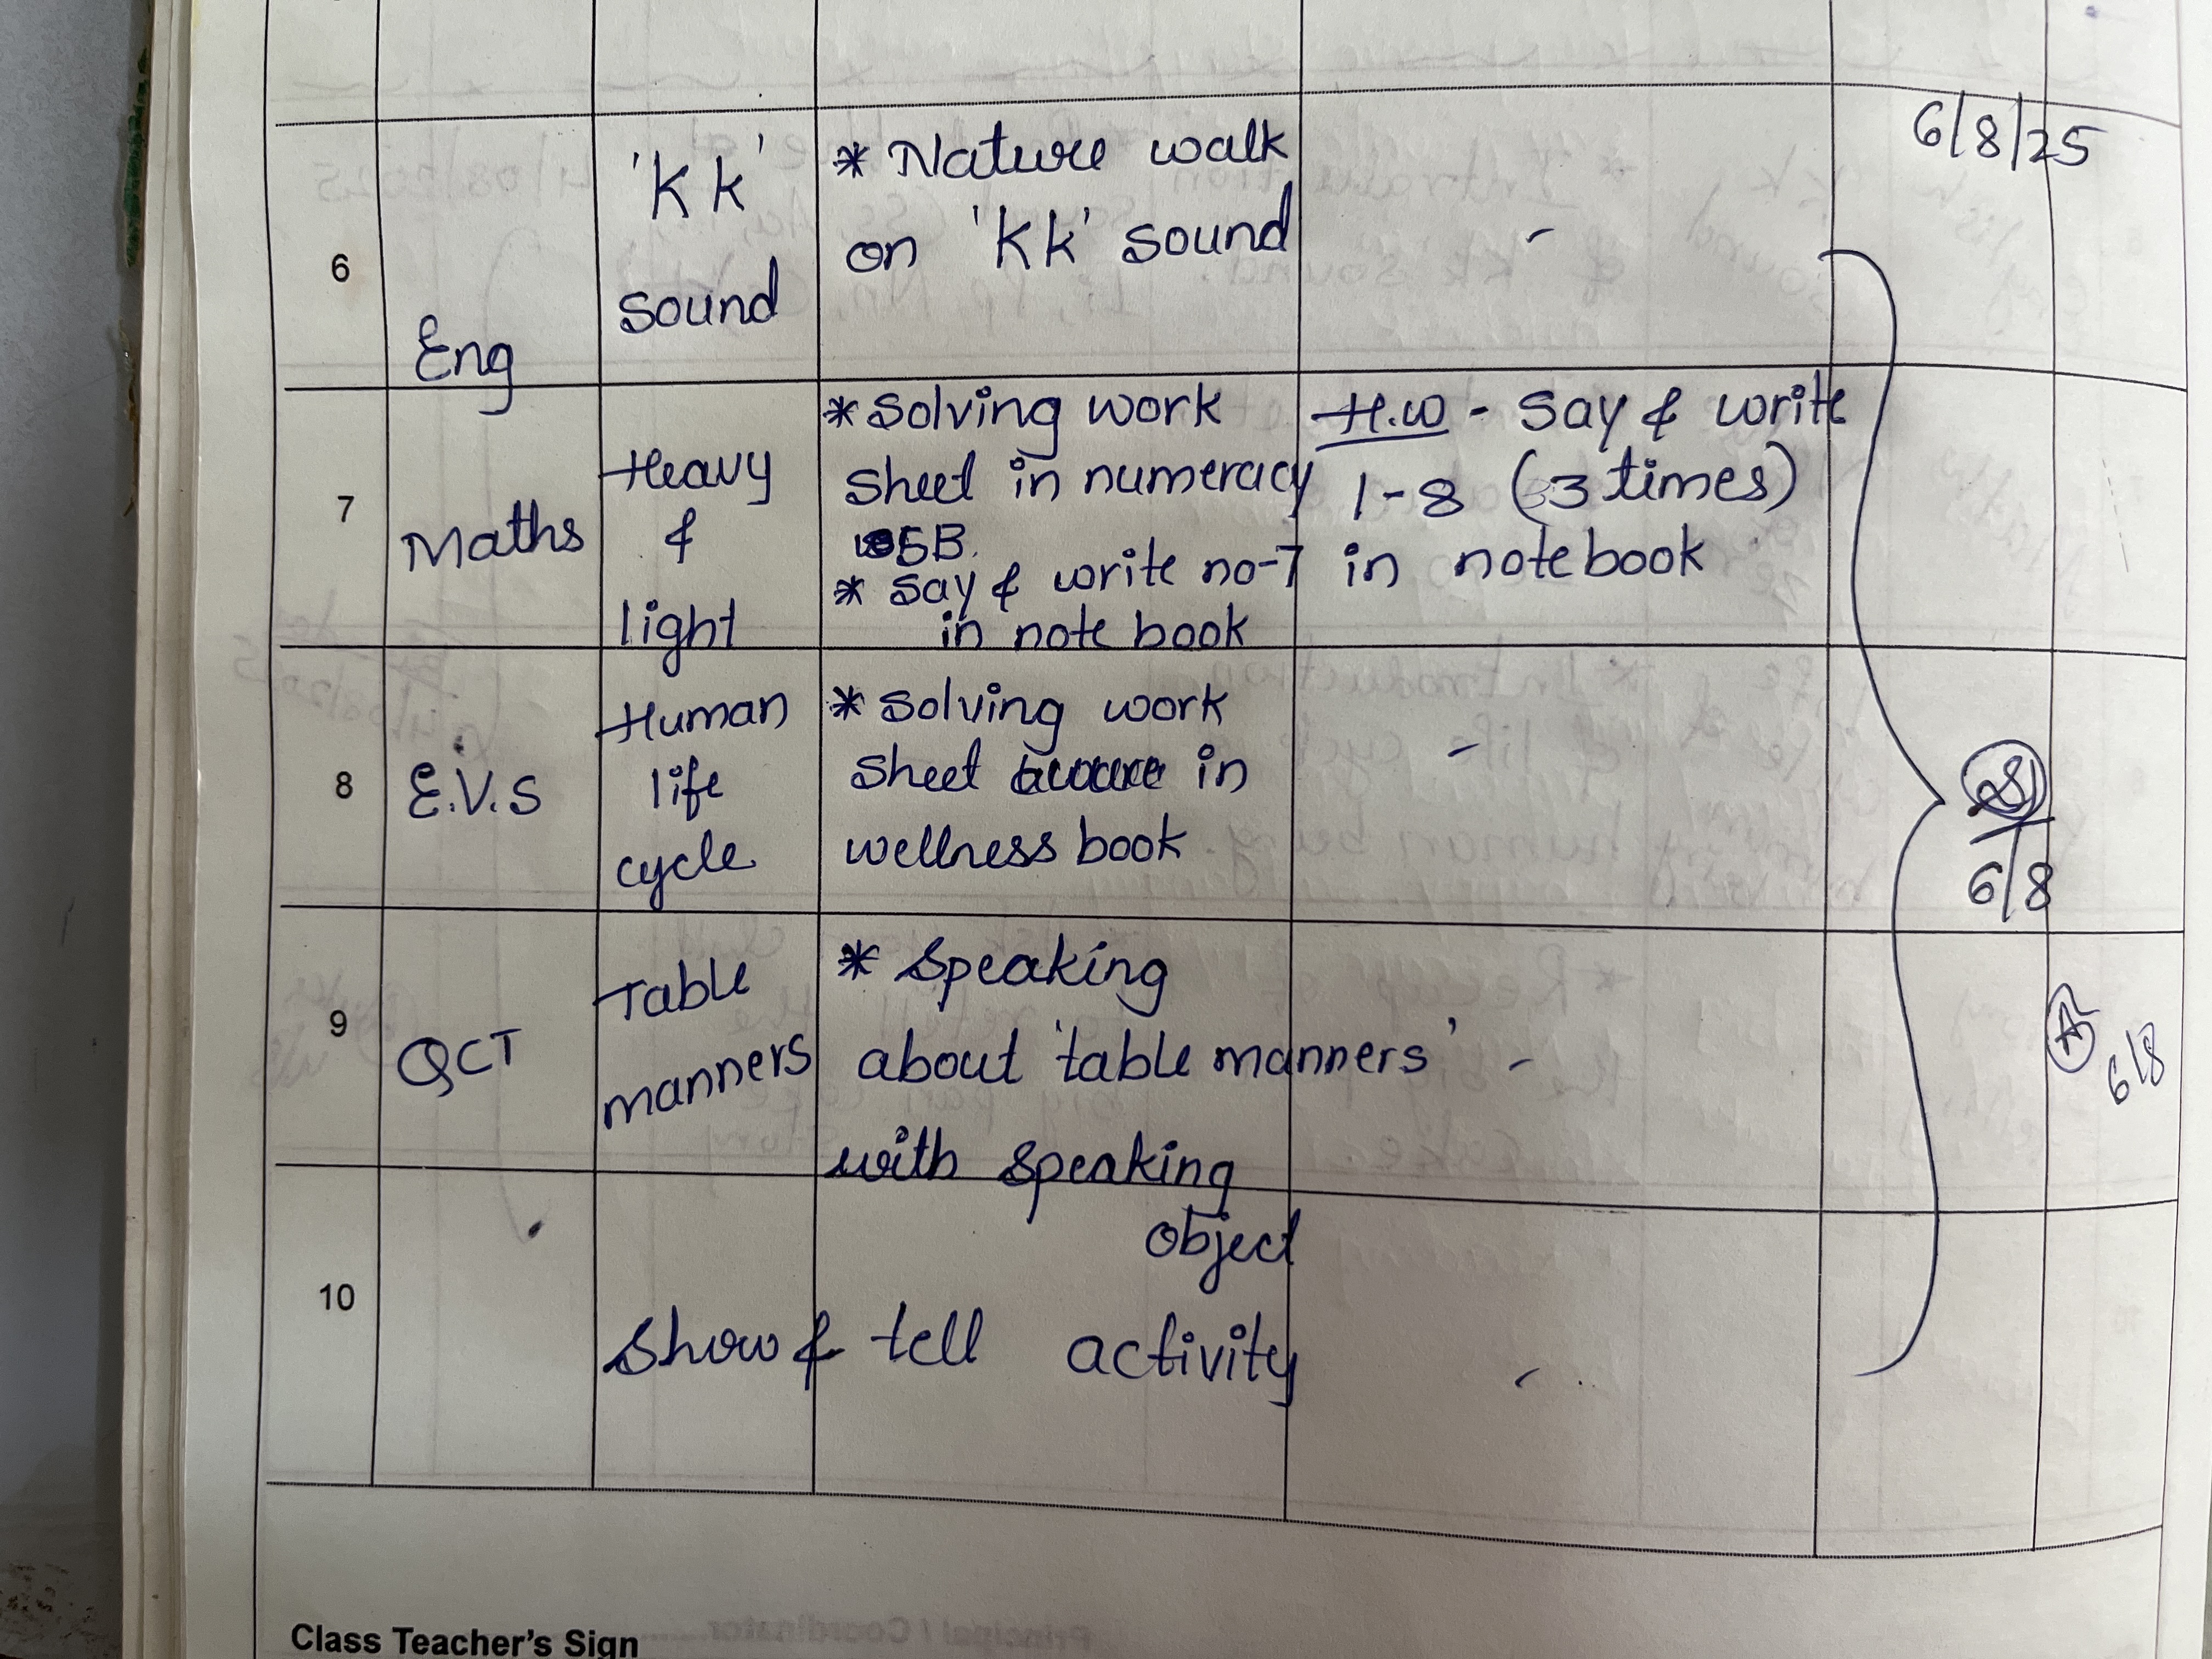 6/8/25
6
Eng
'Kk'
sound
* Nature walk
on 'Kk' sound
-
7
Maths
Heavy
&
light
* Solving work
sheet in numeracy
5B.
* Say & write no-7
in note book
H.W - Say & write
1-8 (3 times)
in notebook
8
E.V.S
Human
life
cycle
* Solving work
sheet in
wellness book
-
6/8
9
QCT
Table
manners
* Speaking
about 'table manners'
with speaking
object
-
A
6/8
10
Show & tell activity
-
Class Teacher's Sign
Principal / Coordinator